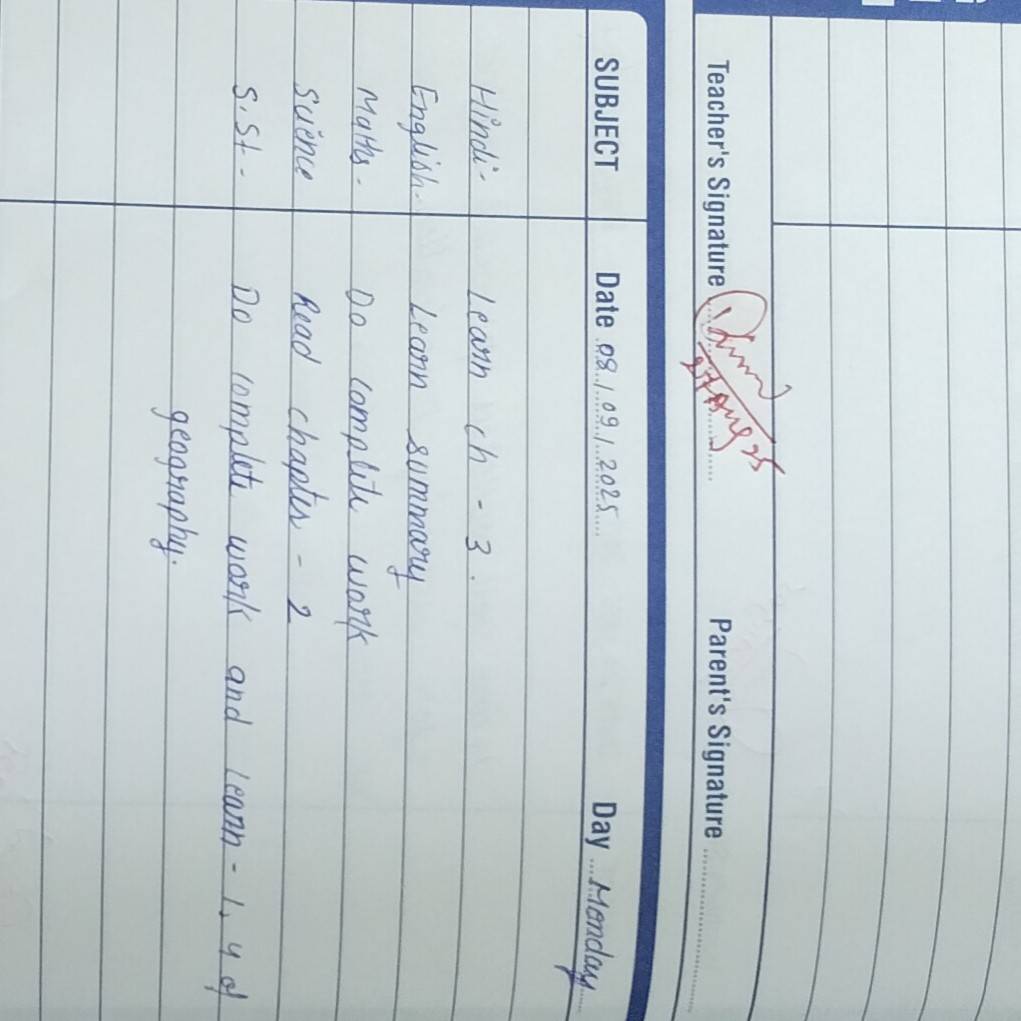 Teacher's Signature 27 Aug 25 Parent's Signature
SUBJECT Date 08/09/2025 Day Monday
Hindi- Learn ch - 3.
English- Learn summary
Maths- Do complete work
Science Read chapter - 2
S.St- Do complete work and learn - 1, 4 of
geography.